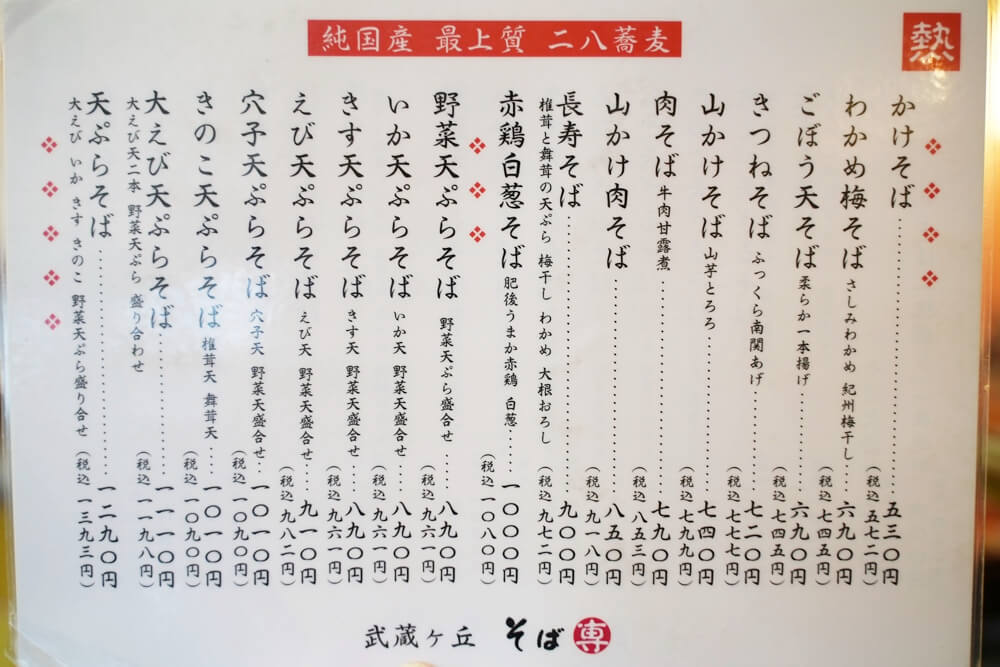 純国産 最上質 二八蕎麦
熱
かけそば……五三〇円
(税込 五七二円)
わかめ梅そば さしみわかめ 紀州梅干し……六九〇円
(税込 七四五円)
ごぼう天そば 柔らか一本揚げ……六九〇円
(税込 七四五円)
きつねそば ふっくら南関あげ……七二〇円
(税込 七七七円)
山かけそば 山芋とろろ……七四〇円
(税込 七九九円)
肉そば 牛肉甘露煮……七九〇円
(税込 八五三円)
山かけ肉そば……八五〇円
(税込 九一八円)
長寿そば……九〇〇円
椎茸と舞茸の天ぷら 梅干し わかめ 大根おろし
(税込 九七二円)
赤鶏白葱そば 肥後うまか赤鶏 白葱……一〇〇〇円
(税込 一〇八〇円)
野菜天ぷらそば 野菜天ぷら盛合せ……八九〇円
(税込 九六一円)
いか天ぷらそば いか天 野菜天盛合せ……八九〇円
(税込 九六一円)
きす天ぷらそば きす天 野菜天盛合せ……八九〇円
(税込 九六一円)
えび天ぷらそば えび天 野菜天盛合せ……九一〇円
(税込 九八二円)
穴子天ぷらそば 穴子天 野菜天盛合せ……一〇一〇円
(税込 一〇九〇円)
きのこ天ぷらそば 椎茸天 舞茸天……一〇一〇円
(税込 一〇九〇円)
大えび天ぷらそば……一一一〇円
大えび天二本 野菜天ぷら 盛り合わせ
(税込 一一九八円)
天ぷらそば……一二九〇円
大えび いか きす きのこ 野菜天ぷら盛り合せ
(税込 一三九三円)
武蔵ヶ丘 そば 専